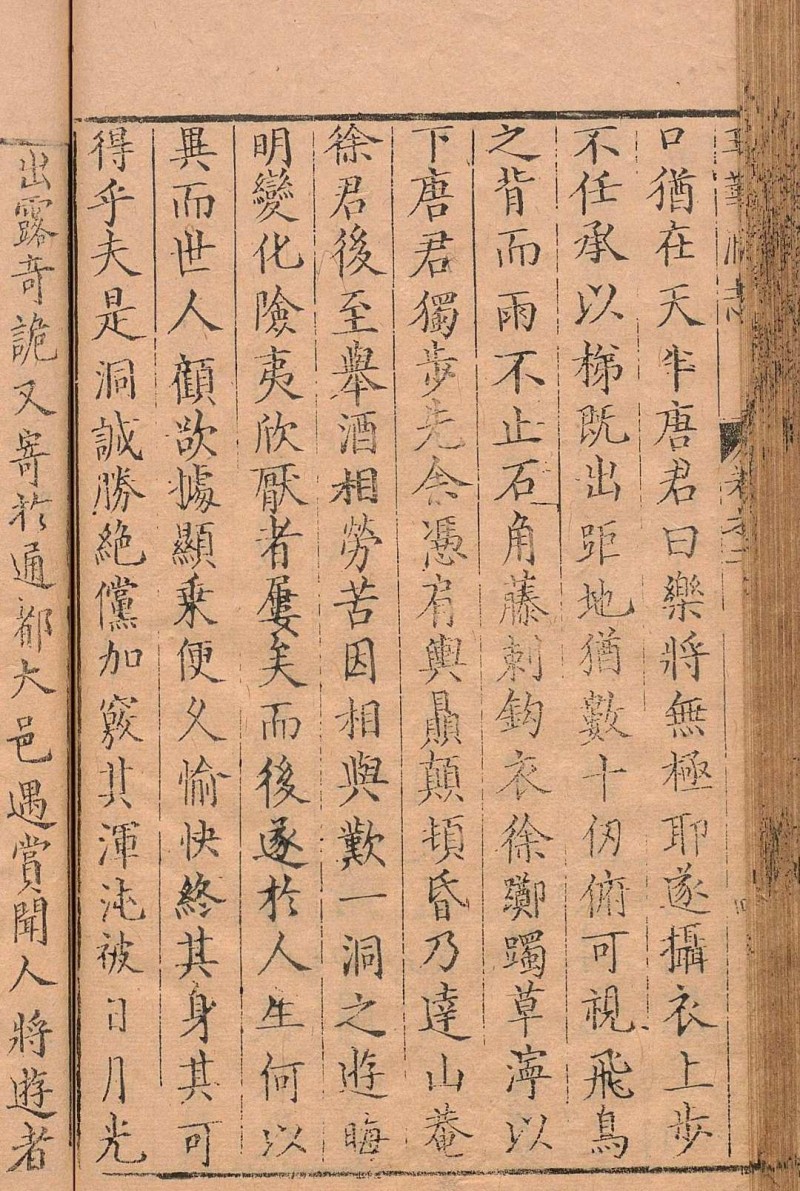 口猶在天半唐君曰樂將無極耶遂攝衣上步
不任承以梯既出距地猶數十仞俯可視飛鳥
之背而雨不止石角藤刺鈎衣徐躑躅草濘以
下唐君獨步先余憑肩輿贔顛頓昏乃達山菴
徐君後至舉酒相勞苦因相與歎一洞之遊晦
明變化險夷欣厭者屢矣而後遂於人生何以
異而世人顧欲據顯乗便久愉快終其身其可
得乎夫是洞誠勝絶儻加竅其渾沌被日月光
出露奇詭又寄於通都大邑遇賞聞人將遊者